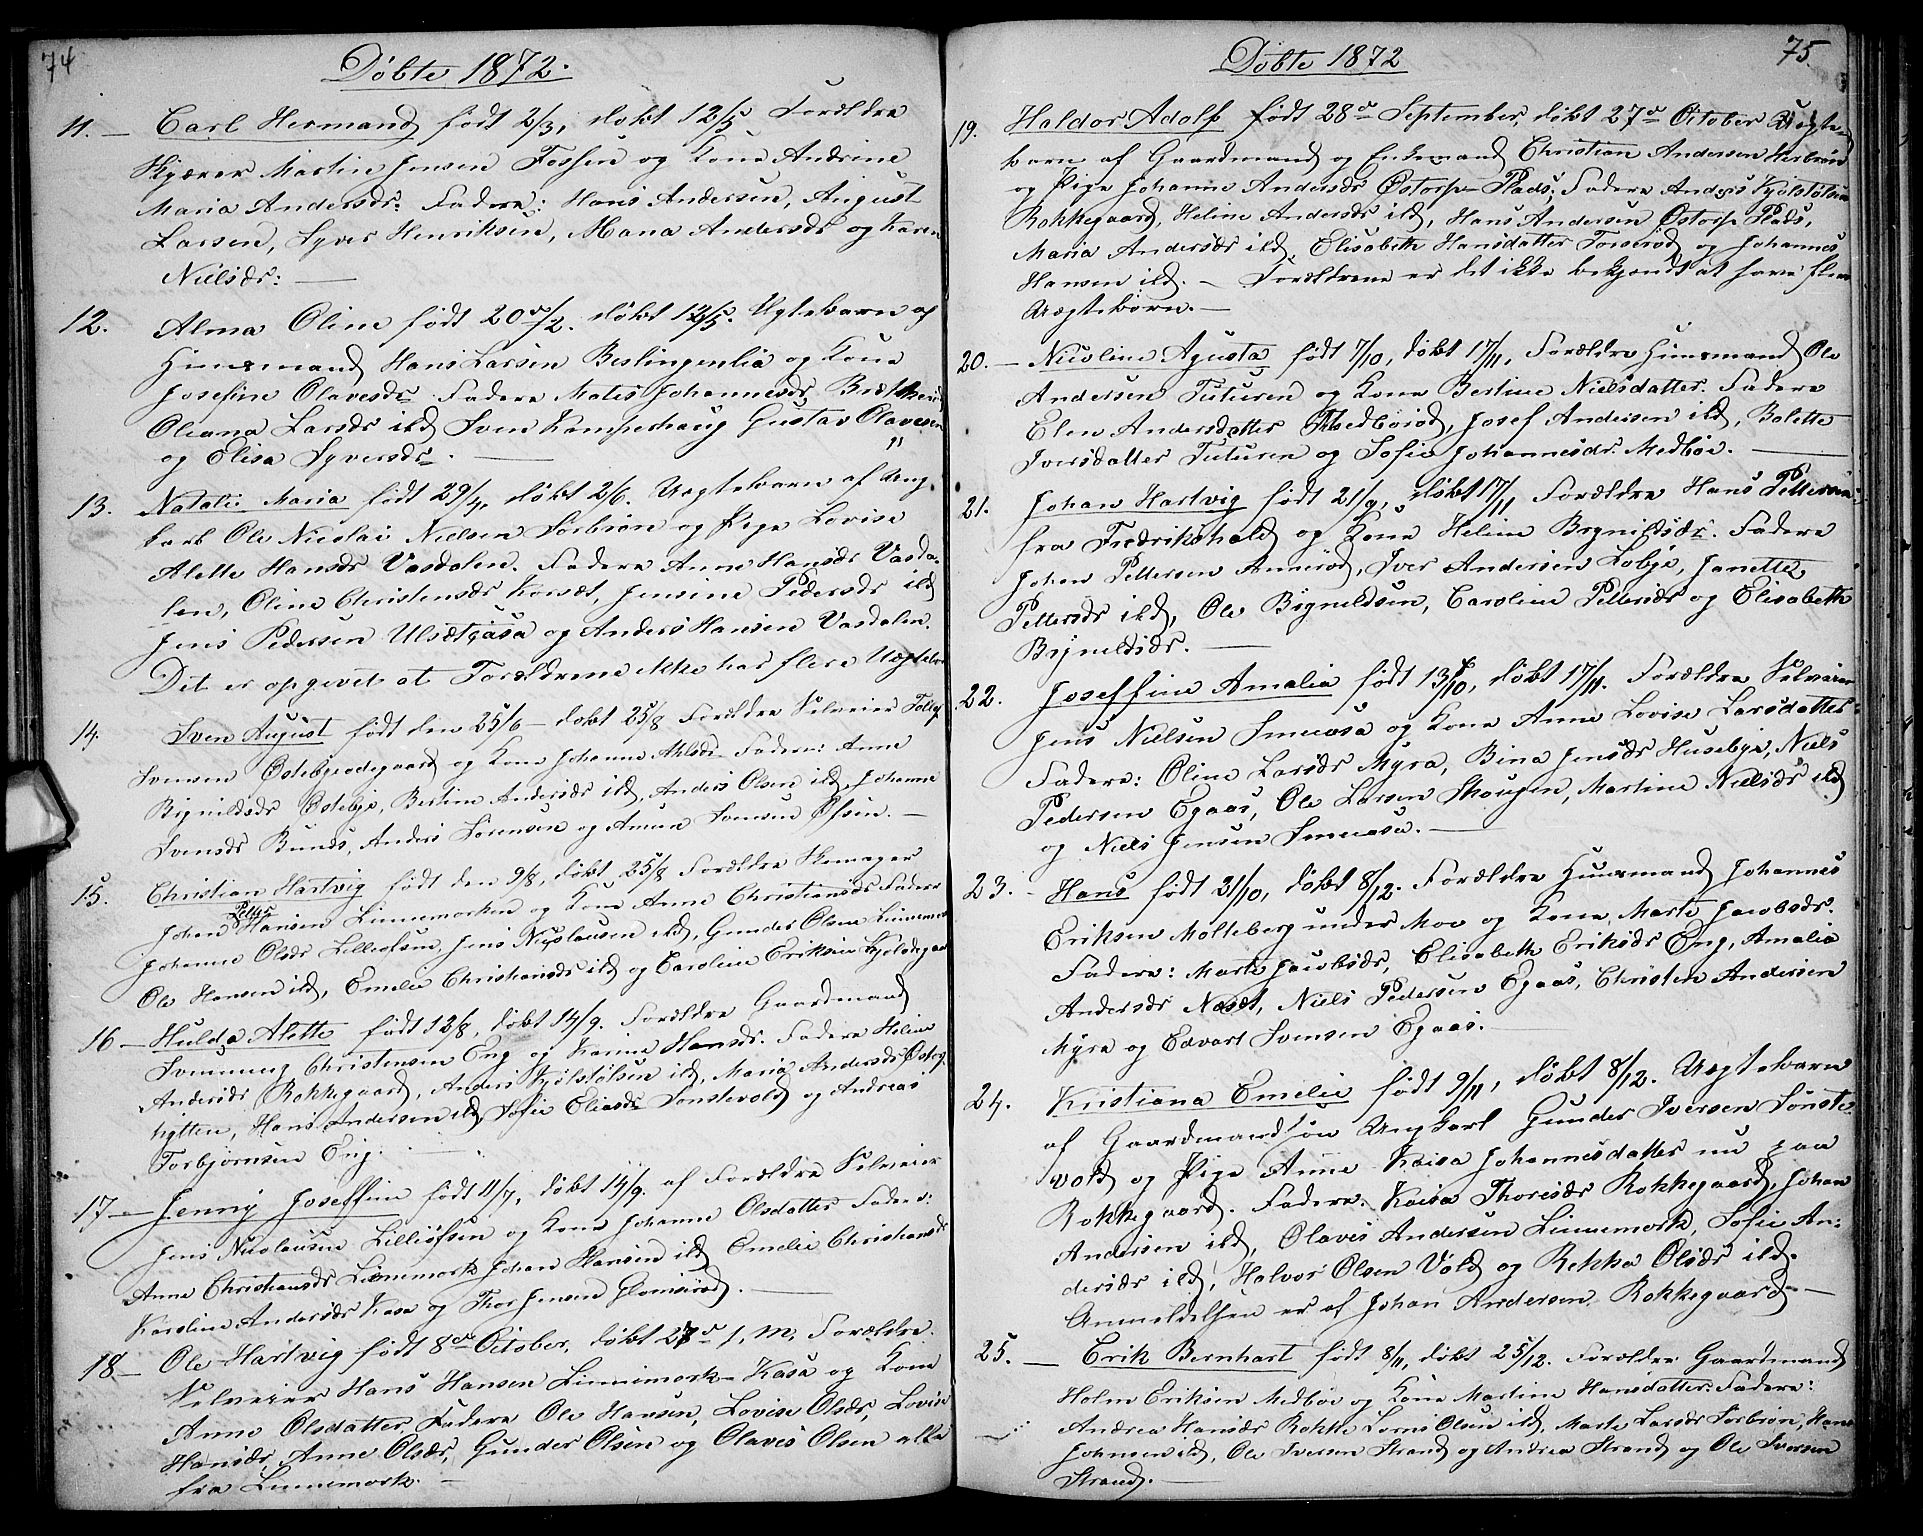 74
Døbte 1872.
11. — Carl Hermand, født 2/3, døbt 12/5 Forældre
Skjærer Martin Jensen Fossen og Kone Andrine
Maria Andersdr. Fadere: Hans Andersen, August
Larsen, Syver Henriksen, Maria Andersdr og Karen
Nielsdr: —
12. Alma Oline født 20de/2. døbt 12/5. Ægtebarn af
Huusmand Hans Larsen Berlingenlia og Kone
Josefine Olavesdr Fadere Mates Johannesdr
Oleana Larsdr ibd, Sven Kamperhaug Gustav Olavesen
og Elisa Syversdr. —
13. Natalie Maria født 29/4, døbt 2/6. Uægtebarn af Ung
karl Ole Nicolai Nielsen Sørbrøn og Pige Lovise
Alette Hansdr Vasdalen. Fadere Anne Hansdr Vasda-
len, Oline Christensdr Korsæt, Jensine Pedersdr ibd,
Jens Pedersen Ulsætgåsa og Anders Hansen Vasdalen.
Det er opgivet at Forældrene ikke har flere Uægteb
14. Sven August født den 25/6 — døbt 25/8 Forældre Selveier Tollef
Svensen Østebyødegaard og Kone Johanne Fadere: Anne
Brynildsdr Østebye, Bertine Andersdr ibd, Anders Olsen ibd, Johanne
Svensdr Bunds, Anders Sørensen og Amun Svensen —
15. Christian Hartvig født den 9/8, døbt 25/8 Forældre Skomager
Johan Peter Hansen Linnemorken og Kone Anne Christiansdr Fadere
Johanne Olsdr Lilliofsen, Jens Nicolausen ibd, Gunder Olsen Linnemork
Ole Hansen ibd, Emelie Christiansdr ibd og Caroline Eriksen
16 — Hulda Alette født 12/8, døbt 14/9. Forældre Gaardmand
Svenning Christensen Eng og Karine Hansdr. Fadere Heline
Andersdr Rokkegaard, Anders Kjølstølsen ibd, Maria Andersdr Østorp
hytten, Hans Andersen ibd, Sofie Eliasdr Sønstevold og Andreas
Torbjørnsen Eng. —
17 — Jenny Joseffine født 11/7, døbt 14/9. af Forældre Selveier
Jens Nicolausen Lilliofsen og Kone Johanne Olsdatter Fadere:
Anne Christiansdr Linnemork Johan Hansen ibd, Emelie Christiansdr
Karoline Andersdr Kasa og Thor Jensen Glomsrød. —
18 — Ole Hartvig født 8de October, døbt 27de s. M. Forældre
Selveier Hans Hansen Linnemork-Kasa og Kone
Anne Olsdatter, Fadere Ole Hansen, Lovise Olsdr, Lovise
Hansdr, Anne Olsdr, Gunder Olsen og Olaves Olsen alle
fra Linnemork. —
75.
Døbte 1872
19. Haldor Adolf født 28de September, døbt 27de October Uægte
barn af Gaardmand og Enkemand Christian Andersen Herbrøn
og Pige Johanne Andersdr Østorp-Plads, Fadere Anders Kjølstølsen
Rokkegaard, Heline Andersdr ibd, Hans Andersen Østorp Plads,
Maria Andersdr ibd, Elisabeth Hansdatter Torserød og Johannes
Hansen ibd. — Forældrene er det ikke bekjendt at have flere
Uægtebørn. —
20. — Nicoline Agusta født 7/10, døbt 17/11, Forældre Huusmand Ole
Andersen Tuturen og Kone Bertine Nielsdatter. Fadere
Elen Andersdatter Thedbørød, Josef Andersen ibd, Bolette
Iversdatter Tuturen og Sofie Johannesdr. Medbøe. —
21. Johan Hartvig født 21/9, døbt 17/11 Forældre Hans Pettersen
fra Fredrikshald og Kone Heline Brynildsdr. Fadere
Johan Pettersen Annerød, Iver Andersen Løbye, Janette
Pettersdr ibd, Ole Bryneldsen, Caroline Pettersdr og Elisabeth
Bryneldsdr. —
22. Joseffine Amalia født 13/10, døbt 17/11. Forældre Selveier
Jens Nielsen Smeaasa og Kone Anne Lovise Larsdatter.
Fadere: Oline Larsdr Myra, Bina Jensdr Husebye, Niels
Pedersen Egaas, Ole Larsen Skougen, Martine Nielsdr ibd
og Niels Jensen Smeaasa. —
23. — Hans født 21/10, døbt 8/12. Forældre Huusmand Johannes
Eriksen Molteberg under Moe og Kone Marte Jacobsdr.
Fadere: Marte Jacobsdr, Elisabeth Eriksdr Eng, Amalia
Andersdr Næsæt, Niels Pedersen Egaas, Christen Andersen
Myra og Edvart Svensen Egaas. —
24. Kristiana Emelie født 9/11, døbt 8/12. Uægtebarn
af Gaardmandsøn Ungkarl Gunder Iversen Sønste
vold og Pige Anne Kaisa Johannesdatter nu paa
Rokkegaard. Fadere: Kaisa Thoresdr Rokkegaard, Johan
Andersen ibd, Olaves Andersen Linnemork, Sofie An-
dersdr ibd, Halvor Olsen Vold og Rekka Olsdr ibd.
Anmeldelsen er af Johan Andersen Rokkegaard. —
25. — Erik Bernhart født 8/11, døbt 25/12. Forældre Gaardmand
Holm Eriksen Medbøe og Kone Martine Hansdatter. Fadere:
Andrea Hansdr Rokke Lornts Olsen ibd, Marte Larsdr Sørbrøn, Hans
Johnsen ibd, Ole Iversen Strand og Andrea Strand og Ole Iversen
Strand. —